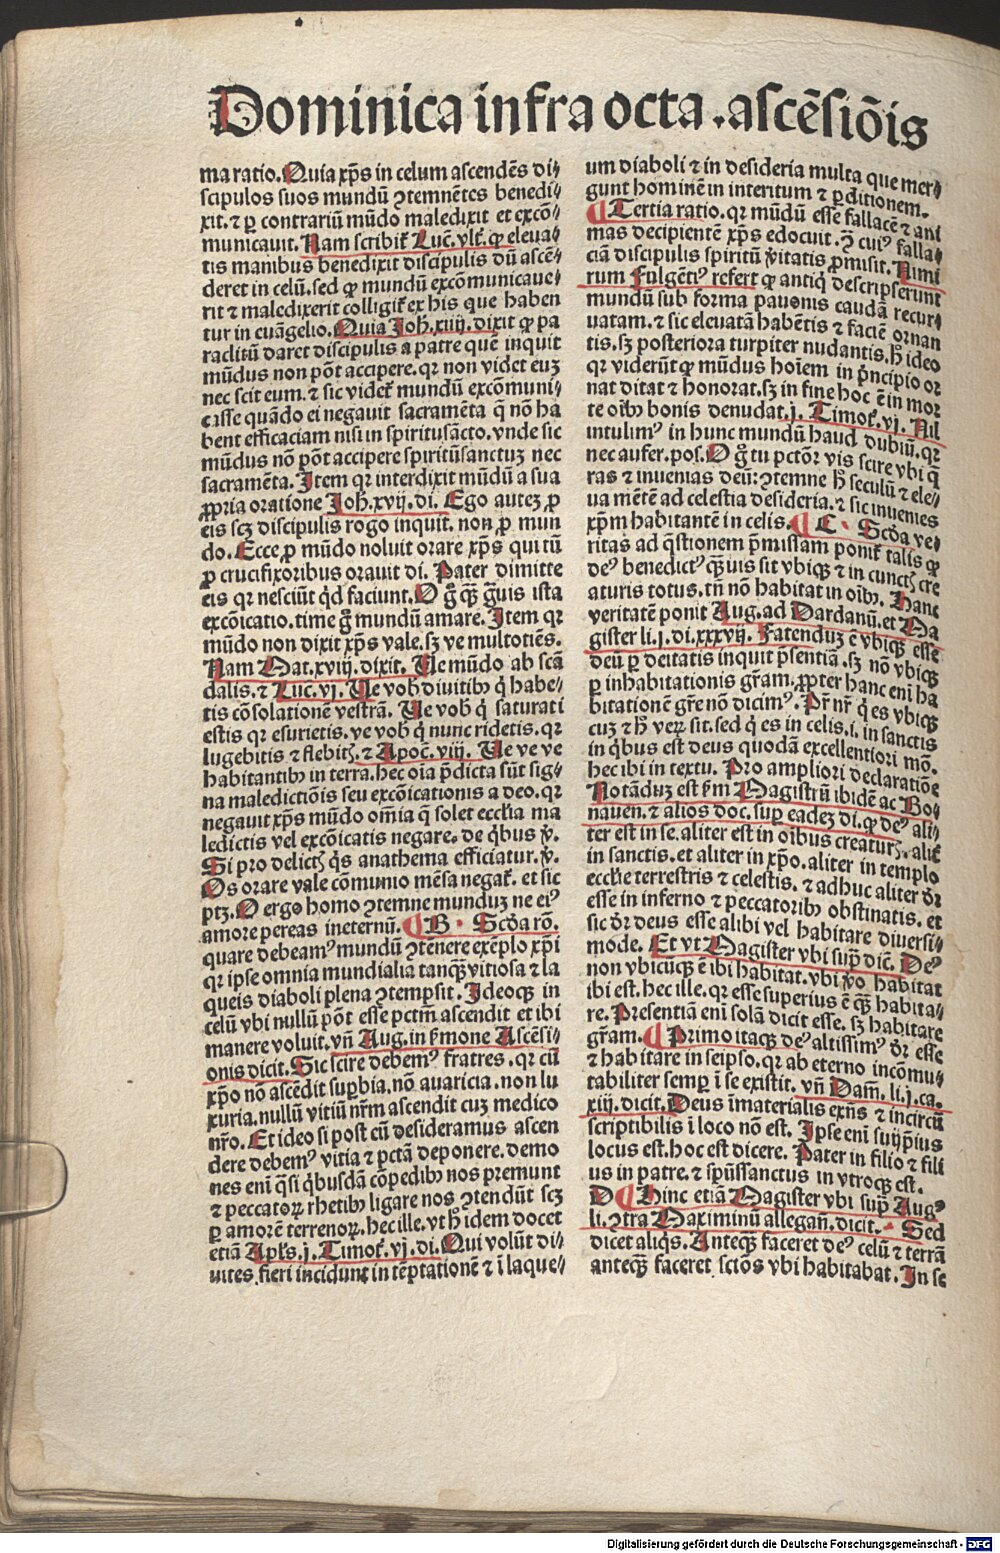 Dominica infra octa .ascēsiōis
ma ratio. Quia xp̄s in celum ascendēs di⸗
scipulos suos mundū ꝯtemnētes benedi⸗
xit. ⁊ ꝑ contrariū mūdo maledixit et excō⸗
municauit. Nam scribit̄ Luc̄. vlt̄. ꝙ eleua⸗
tis manibus benedixit discipulis dū ascē⸗
deret in celū. sed ꝙ mundū excōmunicaue⸗
rit ⁊ maledixerit colligit̄ ex his que haben
tur in euāgelio. Quia Joh̄. xiiij. dixit ꝙ pa
raclitū daret discipulis a patre quē inquit
mūdus non pōt accipere. qr non videt euꝫ
nec scit eum. ⁊ sic videt̄ mundū excōmuni⸗
casse quādo ei negauit sacramēta q̄ nō ha
bent efficaciam nisi in spiritusācto. vnde sic
mūdus nō pōt accipere spiritūsanctuꝫ nec
sacramēta. Item qr interdixit mūdū a sua
ꝓpria oratione Joh̄. xvij. di. Ego auteꝫ ꝓ
eis scꝫ discipulis rogo inquit. non ꝓ mun
do. Ecce ꝓ mūdo noluit orare xp̄s qui tū
ꝓ crucifixoribus orauit di. Pater dimitte
eis qr nesciūt qd̄ faciunt. O g̊ q̄ꝫ g̊uis ista
excōicatio. time g̊ mundū amare. Item qr
mūdo non dixit xp̄s vale. sꝫ ve multotiēs.
Nam Mat. xviij. dixit. Ue mūdo ab scā
dalis. ⁊ Luc. vj. Ue vob̄ diuitibꝰ q̇ habe⸗
tis cōsolationē vestrā. Ue vob̄ q̇ saturati
estis qr esurietis. ve vob̄ q̇ nunc ridetis. qr
lugebitis ⁊ flebitꝭ. ⁊ Apoc̄. viij. Ue ve ve
habitantibꝰ in terra. hec oīa p̄dicta sūt sig⸗
na maledictiōis seu excōicationis a deo. qr
negauit xp̄s mūdo om̄ia q̄ solet ecclīa ma
ledictis vel excōicatis negare. de q̇bus ꝟ.
Si pro delictꝭ q̇s anathema efficiatur. ꝟ.
Os orare vale cōmunio mēsa negat̄. et sic
ptꝫ. O ergo homo ꝯtemne munduꝫ ne eiꝰ
amore pereas ineternū. ¶ B · Scd̄a rō.
quare debeamꝰ mundū ꝯtenere exēplo xp̄i
qr ipse omnia mundialia tanq̄ꝫ vitiosa ⁊ la
queis diaboli plena ꝯtempsit. Ideoqꝫ in
celū vbi nullū pōt esse pctm̄ ascendit et ibi
manere voluit. vn̄ Aug. in ẜmone Ascēsi⸗
onis dicit. Sic scire debemꝰ fratres. qr cū
xp̄o nō ascēdit supbia. nō auaricia. non lu
xuria. nullū vitiū nr̄m ascendit cuꝫ medico
nr̄o. Et ideo si post cū desideramus ascen
dere debemꝰ vitia ⁊ pctā deponere. demo
nes eni q̄si q̇busdā cōpedibꝰ nos premunt
⁊ peccatoꝝ rhetibꝰ ligare nos ꝯtendūt scꝫ
ꝑ amorē terrenoꝝ. hec ille. vt h̄ idem docet
etiā Apl̄s. j. Timot̄. vj. di. Qui volūt di⸗
uites fieri incidunt in tēptationē ⁊ ī laque⸗
um diaboli ⁊ in desideria multa que mer⸗
gunt hominē in interitum ⁊ ꝑditionem.
¶ Tertia ratio. qr mūdū esse fallacē ⁊ ani
mas decipientē xp̄s edocuit. ꝯ̄ cuiꝰ falla⸗
ciā discipulis spiritū v̄itatis ꝓmisit. Nimi
rum Fulgētiꝰ refert ꝙ antiq̇ descripserunt
mundū sub forma pauonis caudā recur⸗
uatam. ⁊ sic eleuatā habētis ⁊ faciē ornan
tis. sꝫ posteriora turpiter nudantis. h̄ ideo
qr viderūt ꝙ mūdus hoīem in p̄ncipio or
nat ditat ⁊ honorat. sꝫ in fine hoc ē in mor
te oībꝰ bonis denudat. j. Timot̄. vj. Nil
intulimꝰ in hunc mundū haud dubiū. qr
nec aufer. pos. O g̊ tu pctōr vis scire vbi q̄
ras ⁊ inuenias deū: ꝯtemne h̄ seculū ⁊ ele⸗
ua mētē ad celestia desideria. ⁊ sic inuenies
xp̄m habitantē in celis. ¶ C · Scd̄a ve⸗
ritas ad q̄stionem p̄missam ponit̄ talis ꝙ
deꝰ benedictꝰ q̄ꝫuis sit vbiqꝫ ⁊ in cunctꝭ cre
aturis totus. tn̄ nō habitat in oībꝰ. Hanc
veritatē ponit Aug. ad Dardanū. et Ma
gister li. j. di. xxxvij. Fatenduꝫ ē vbiqꝫ esse
deū ꝑ deitatis inquit p̄sentiā. sꝫ nō vbiqꝫ
ꝑ inhabitationis gr̄am. ꝓpter hanc eni ha
bitationē gr̄e nō dicimꝰ. Pr̄ nr̄ q̇ es vbiqꝫ
cuꝫ ⁊ h̄ veꝝ sit. sed q̇ es in celis. i. in sanctis
in q̇bus est deus quodā excellentiori mō.
hec ibi in textu. Pro ampliori declaratiōe
Notāduꝫ est ẜm Magistrū ibidē ac Bo⸗
nauen. ⁊ alios doc. sup eadeꝫ di. ꝙ deꝰ ali⸗
ter est in se. aliter est in oībus creaturꝭ. alit̄
in sanctis. et aliter in xp̄o. aliter in templo
eccl̄ie terrestris ⁊ celestis. ⁊ adhuc aliter dr̄
esse in inferno ⁊ peccatoribꝰ obstinatis. et
sic dr̄ deus esse alibi vel habitare diuersi⸗
mode. Et vt Magister vbi sup̄ dic̄. Deꝰ
non vbicūqꝫ ē ibi habitat. vbi v̊o habitat
ibi est. hec ille. qr esse superius ē q̄ꝫ habita⸗
re. Presentiā eni solā dicit esse. sꝫ habitare
gr̄am. ¶ Primo itaqꝫ deꝰ altissimꝰ dr̄ esse
⁊ habitare in seipso. qr ab eterno incōmu⸗
tabiliter semp̄ ī se existit. vn̄ Dam̄. li. j. ca.
xiij. dicit. Deus īmaterialis exn̄s ⁊ incircū
scriptibilis ī loco nō est. Ipse eni suiip̄ius
locus est. hoc est dicere. Pater in filio ⁊ fili
us in patre. ⁊ sp̄ussanctus in vtroqꝫ est.
D ¶ Hinc etiā Magister vbi sup̄ Augꝰ
li. ꝯtra Maximinū allegan̄. dicit. · Sed
dicet aliq̇s. Anteq̄ꝫ faceret deꝰ celū ⁊ terrā
anteq̄ꝫ faceret sctōs vbi habitabat. In se
Digitalisierung gefördert durch die Deutsche Forschungsgemeinschaft - DFG